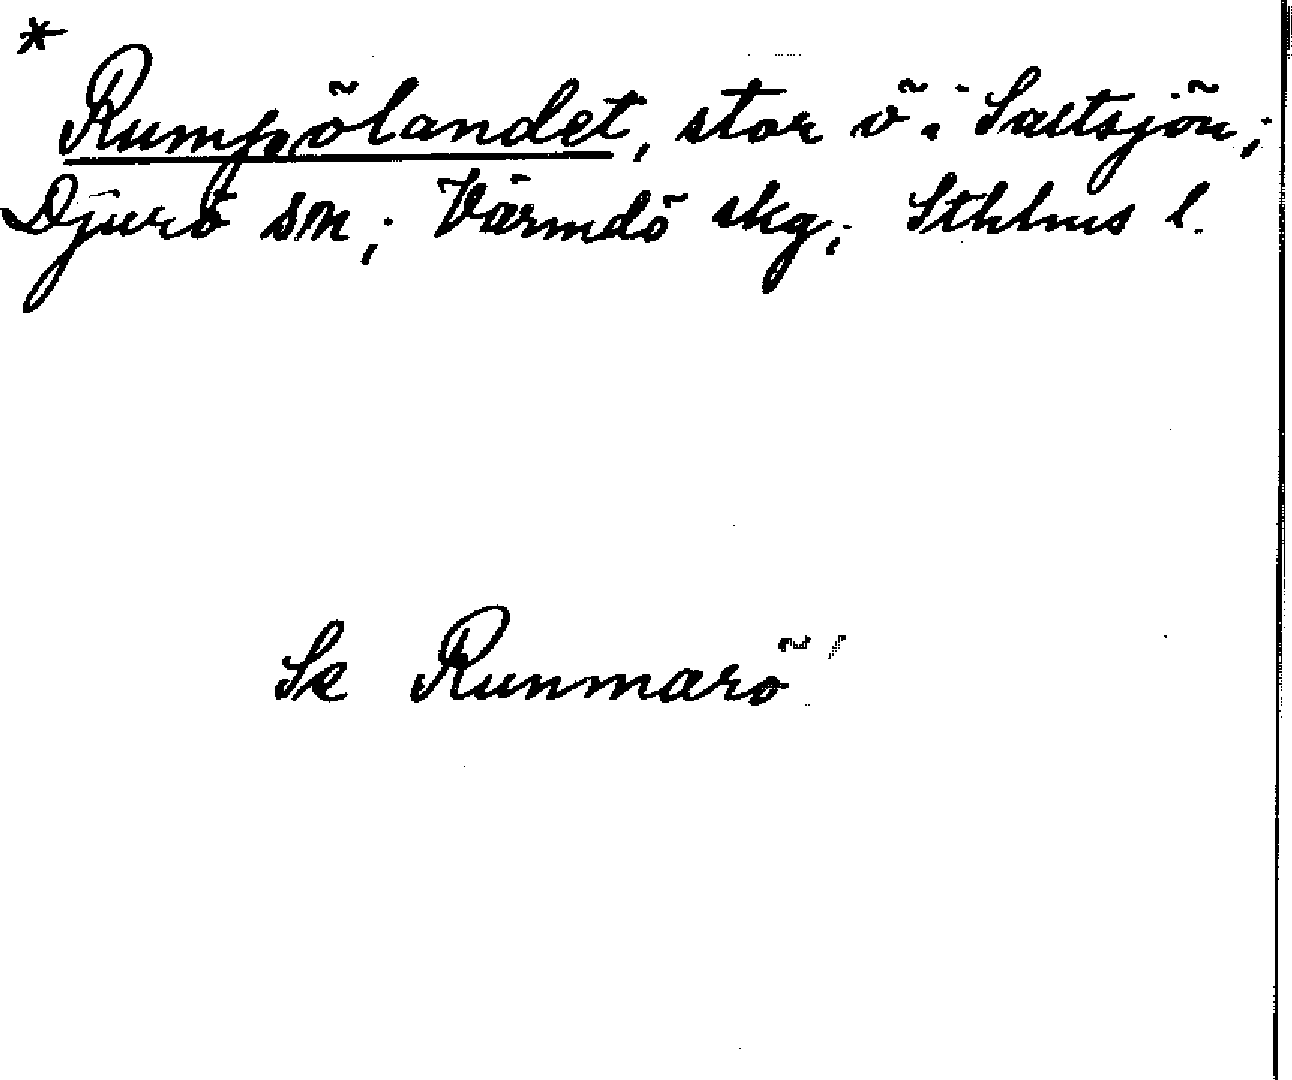 *
Rumpölandet, stor ö i Saltsjön;
Djurö sn; Värmdö skg; Sthlms l.
Se Runmarö